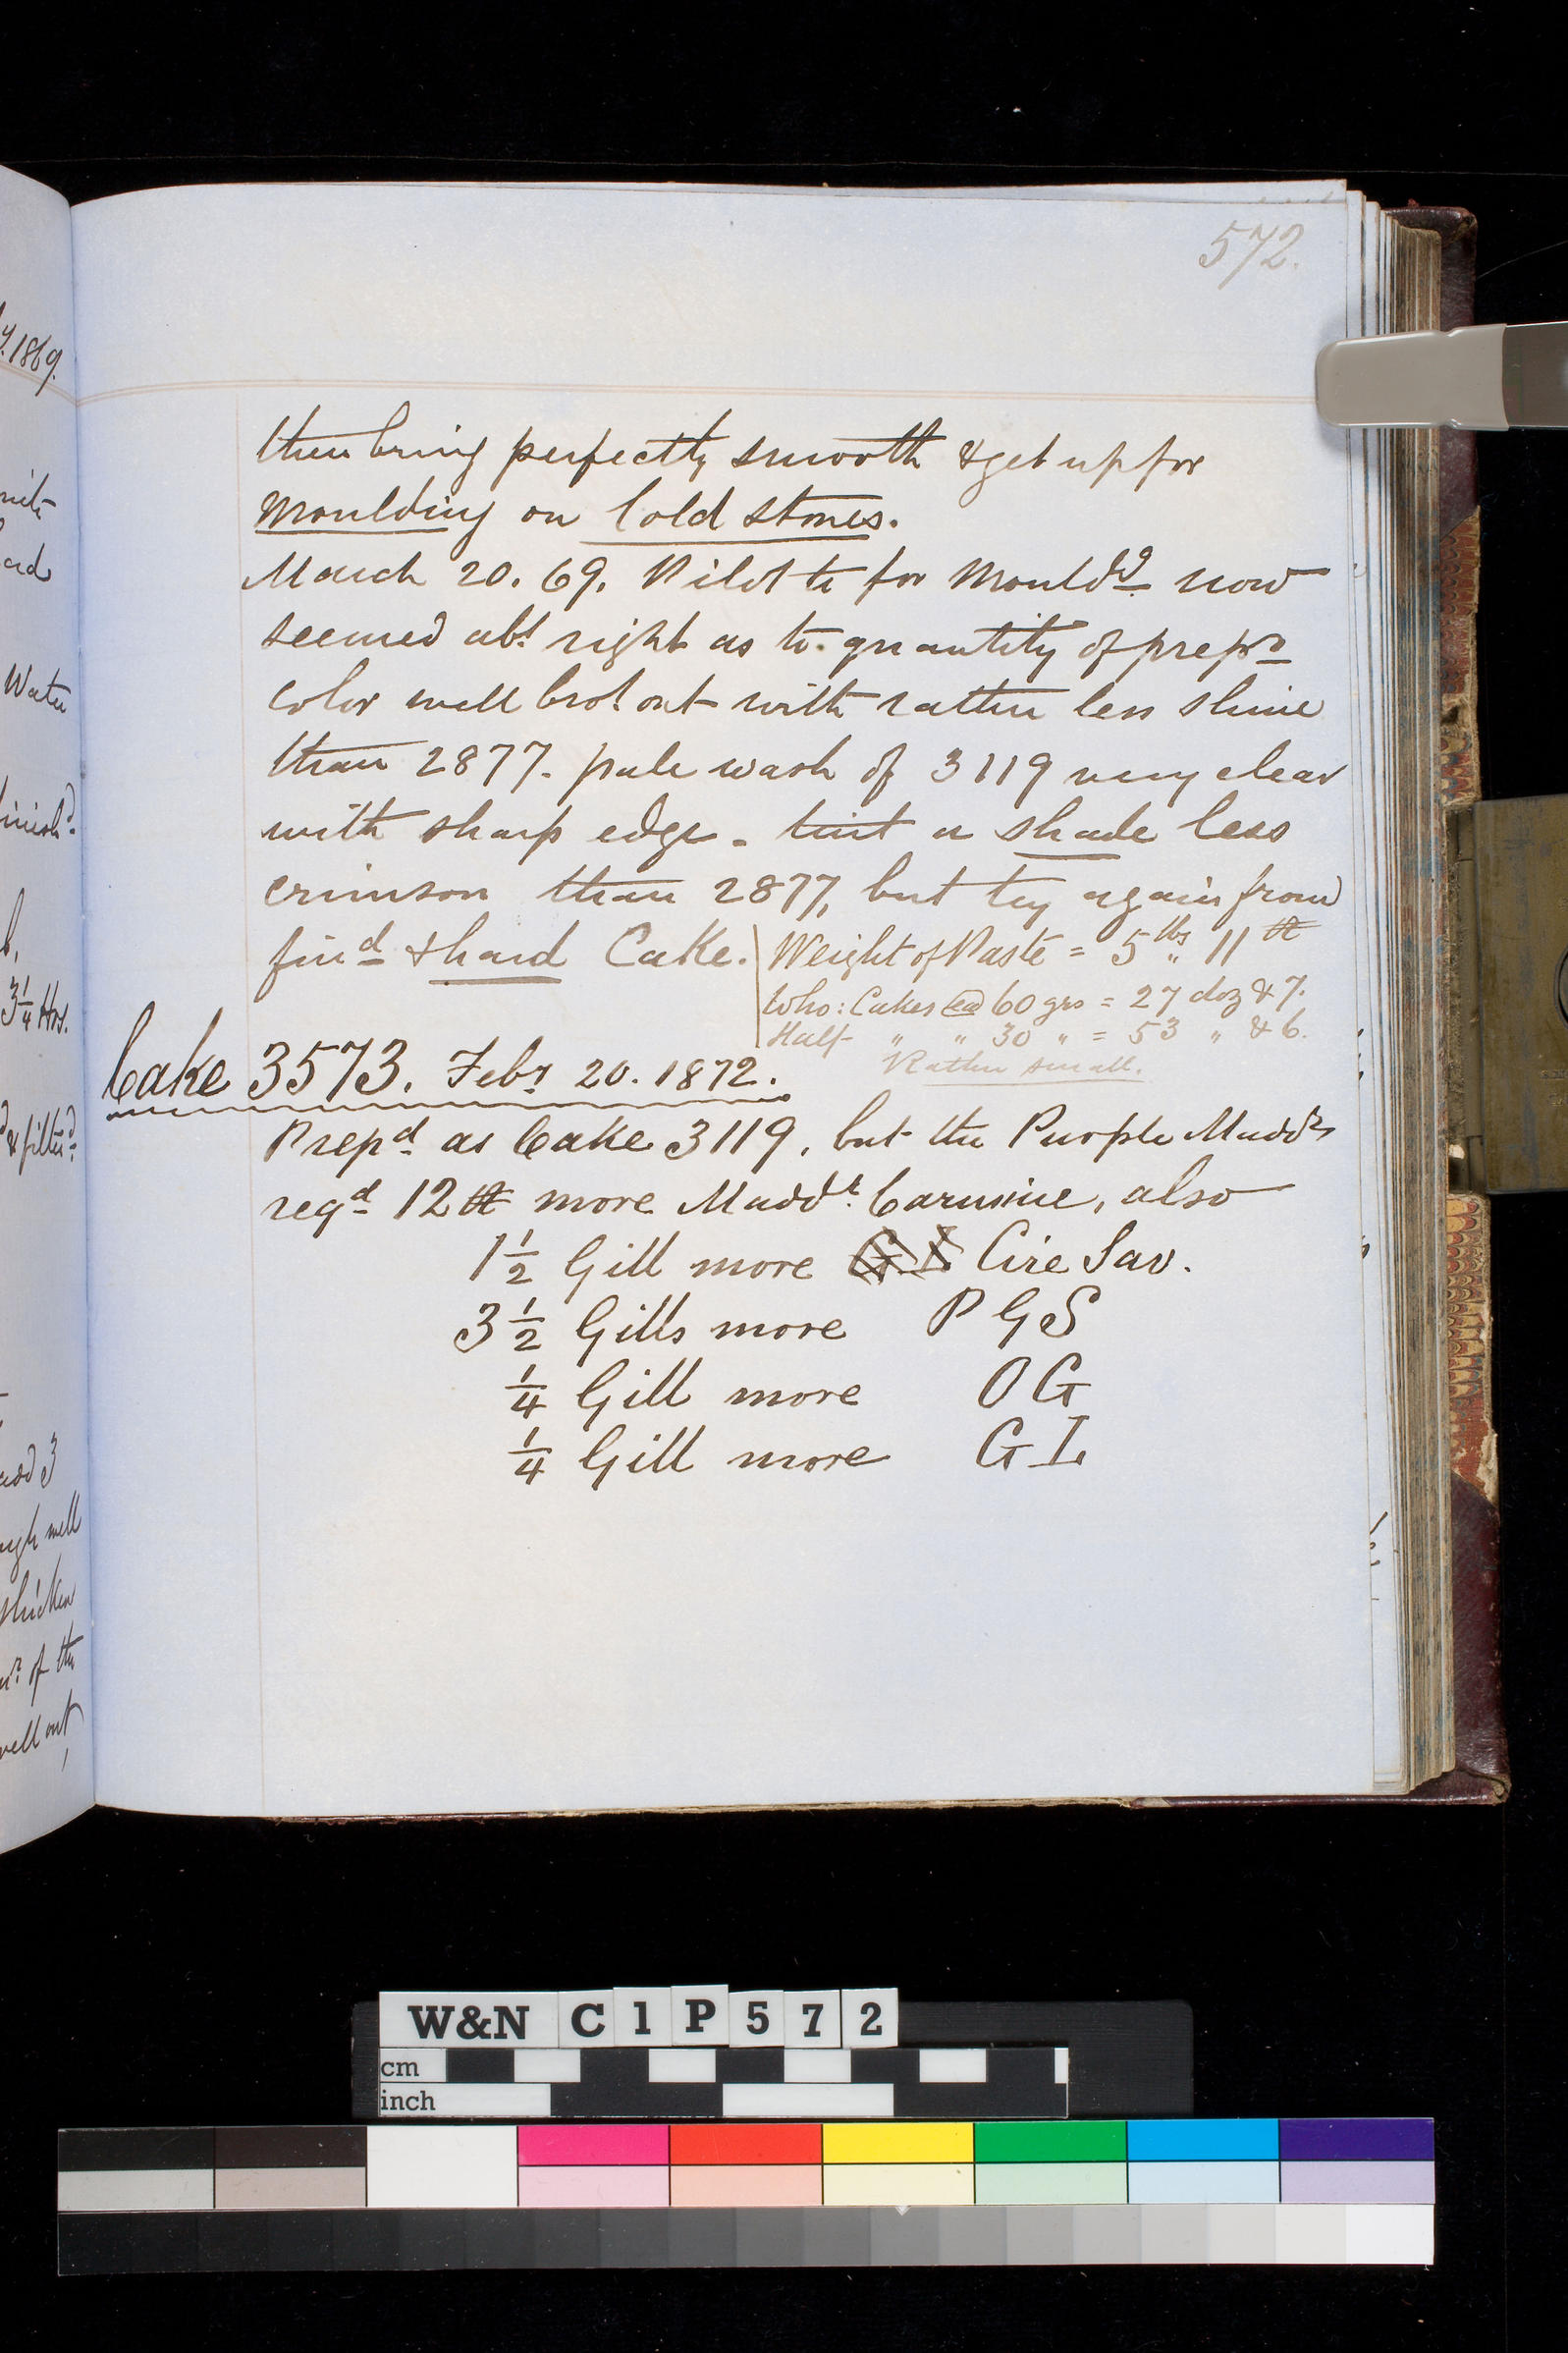 572.
then bring perfectly smooth & get up for
moulding on Cold stones.
March 20. 69. Pilot tt for Mouldg now
seemed abt right as to quantity of prepn
color well brot out with rather less shine
than 2877. pale wash of 3119 very clear
with sharp edge - tint a shade less
crimson than 2877, but try again from
find & hard Cake.
Weight of Paste = 5 lbs " 11 tt
Who: Cakes @ 60 grs = 27 doz & 7.
Half " " 30 " = 53 " & 6.
Rather small.
Cake 3573. Feby 20. 1872.
Prepd as Cake 3119, but the Purple Maddr
reqd 12 tt more Maddr Carmine, also
1½ Gill more G L Cire Sav.
3½ Gills more P G S
¼ Gill more O G
¼ Gill more G L
y. 1869.
Water
finishd
3¼ Hrs.
& filterd
add 3
thicken
of the
well out
W&N C1P572
cm
inch